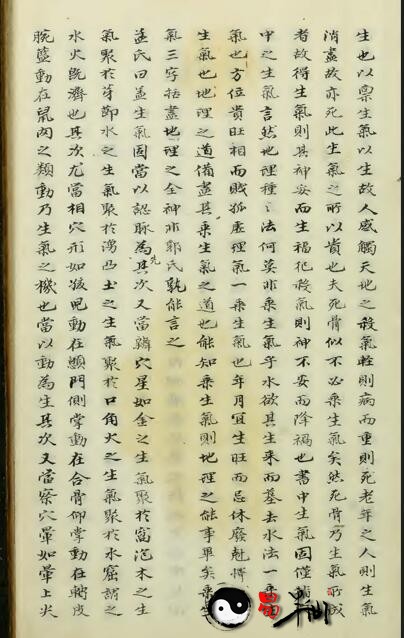 生也以禀生氣以生故人感觸天地之殺氣輕則病而重則死老年之人則生氣
消盡故亦死此生氣之所以貴也夫死骨似不必乘生氣矣然死骨乃生氣所成
者故得生氣則其神安而生福犯殺氣則神不安而降禍也書中生氣固僅
中之生氣言然地理種種法何莫非乘生氣乎水欲其生來而墓去水法一乘生
氣也方位貴旺相而賤孤虛理氣一乘生氣也年月宜生旺而忌休廢尅
生氣也地理之道備盡其乘生氣之道也能知乘生氣則地理之能事畢矣乘生
氣三字括盡地理之全神非郭氏孰能言之
孟氏曰葢生氣固當以認脉為先其次又當辨穴星如金之生氣聚於窩泡木之生
氣聚於芽節水之生氣聚於灣凸土之生氣聚於口角火之生氣聚於水窟謂之
水火既濟也其次尤當相穴形如孩兒動在顖門側掌動在合骨仰掌動在
腕籃動在鼠肉之類動乃生氣之機也當以動為生其次又當察穴暈如暈上尖